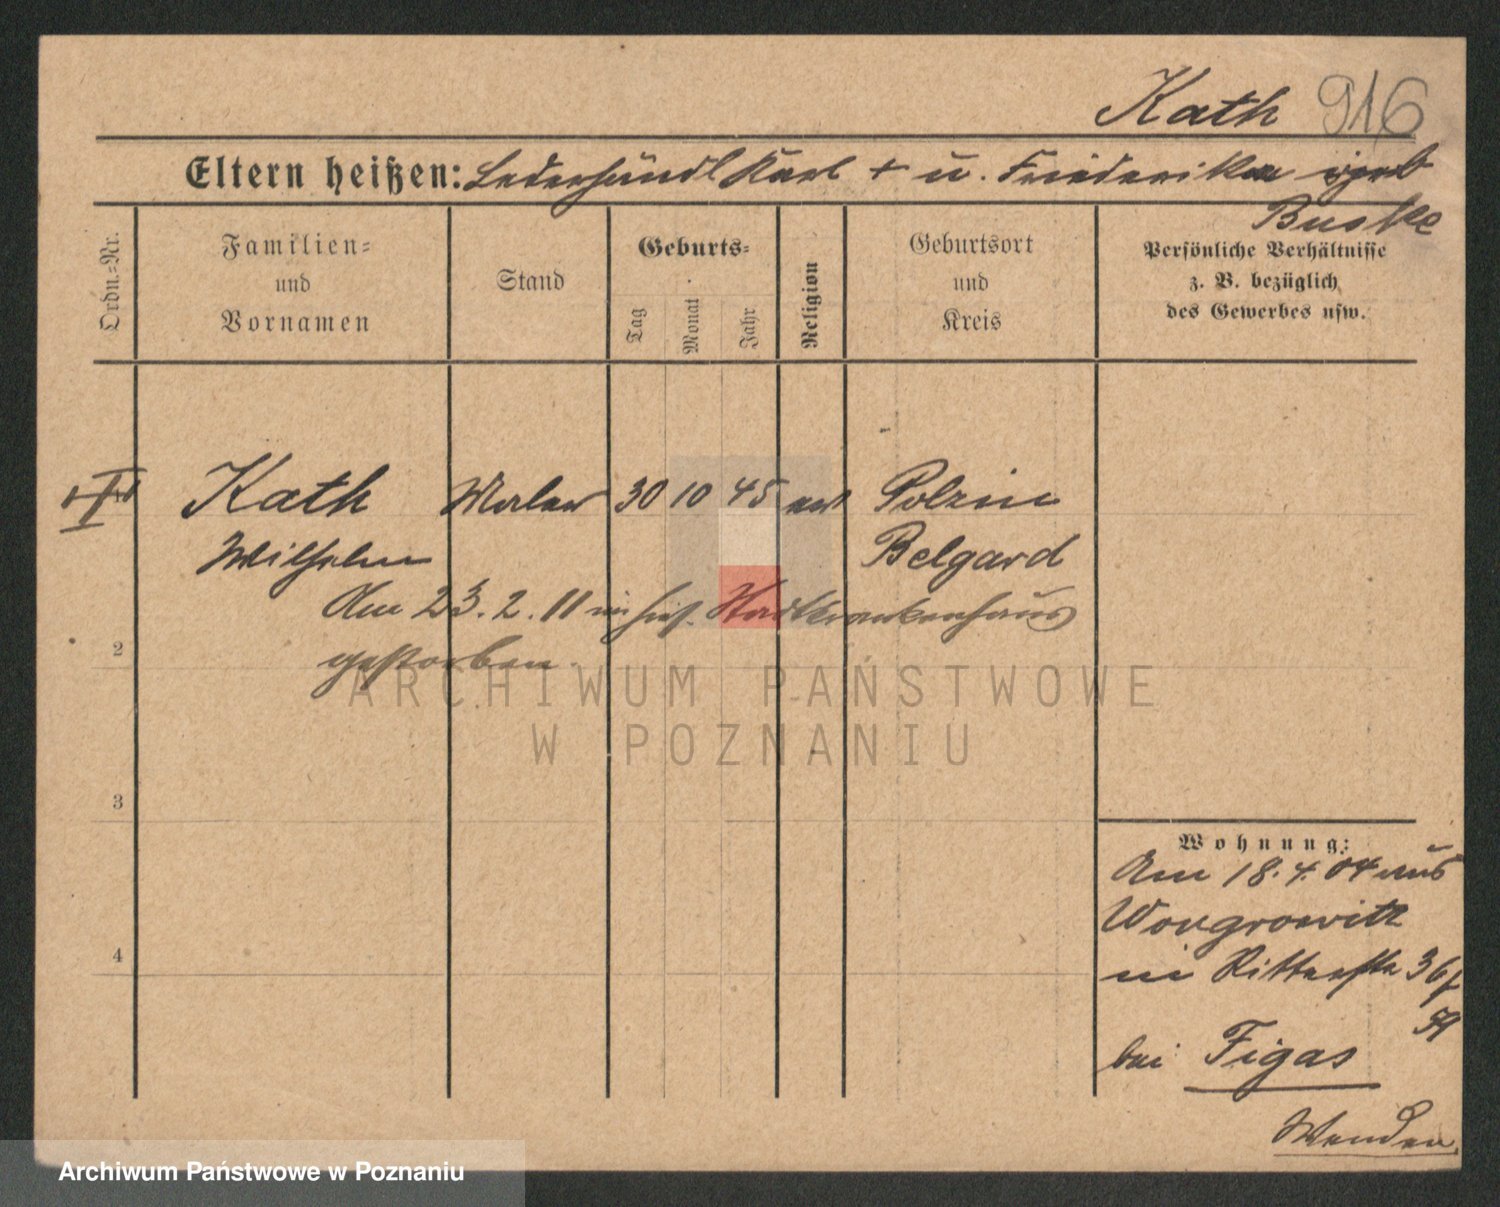 Kath 916
Eltern heißen: Lederhändl Karl + u. Friederika geb
Buske
Ordn.=Nr.
Familien=
und
Vornamen
Stand
Geburts=
Tag
Monat
Jahr
Religion
Geburtsort
und
Kreis
Persönliche Verhältnisse
z. B. bezüglich
des Gewerbes usw.
Kath Maler 30 10 45 Polzin
Wilhelm Belgard
Am 23.2.11 im hies. Stadtkrankenhaus
gestorben.
2
3
4
Wohnung:
Am 18.4.04 aus
Wongrowitz
in Ritterstr 36
bei Figas
Wenden
ARCHIWUM PAŃSTWOWE
W POZNANIU
Archiwum Państwowe w Poznaniu